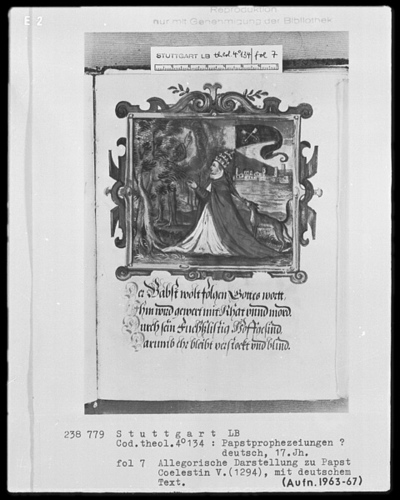 Reproduktion
nur mit Genehmigung der Bibliothek
E 2
STUTTGART LB theol. 4° 134 / fol 7
Der Babst wolt folgen Gottes wortt,
Ihm wird gewert mit Rhat vnnd mord,
Durch sein Fuchßlistig Hoffgesind,
Darumb ehr bleibt verstockt vnd blind.
238 779 Stuttgart LB
Cod.theol.4°134 : Papstprophezeiungen ?
deutsch, 17.Jh.
fol 7 Allegorische Darstellung zu Papst
Coelestin V.(1294), mit deutschem
Text. (Aufn.1963-67)